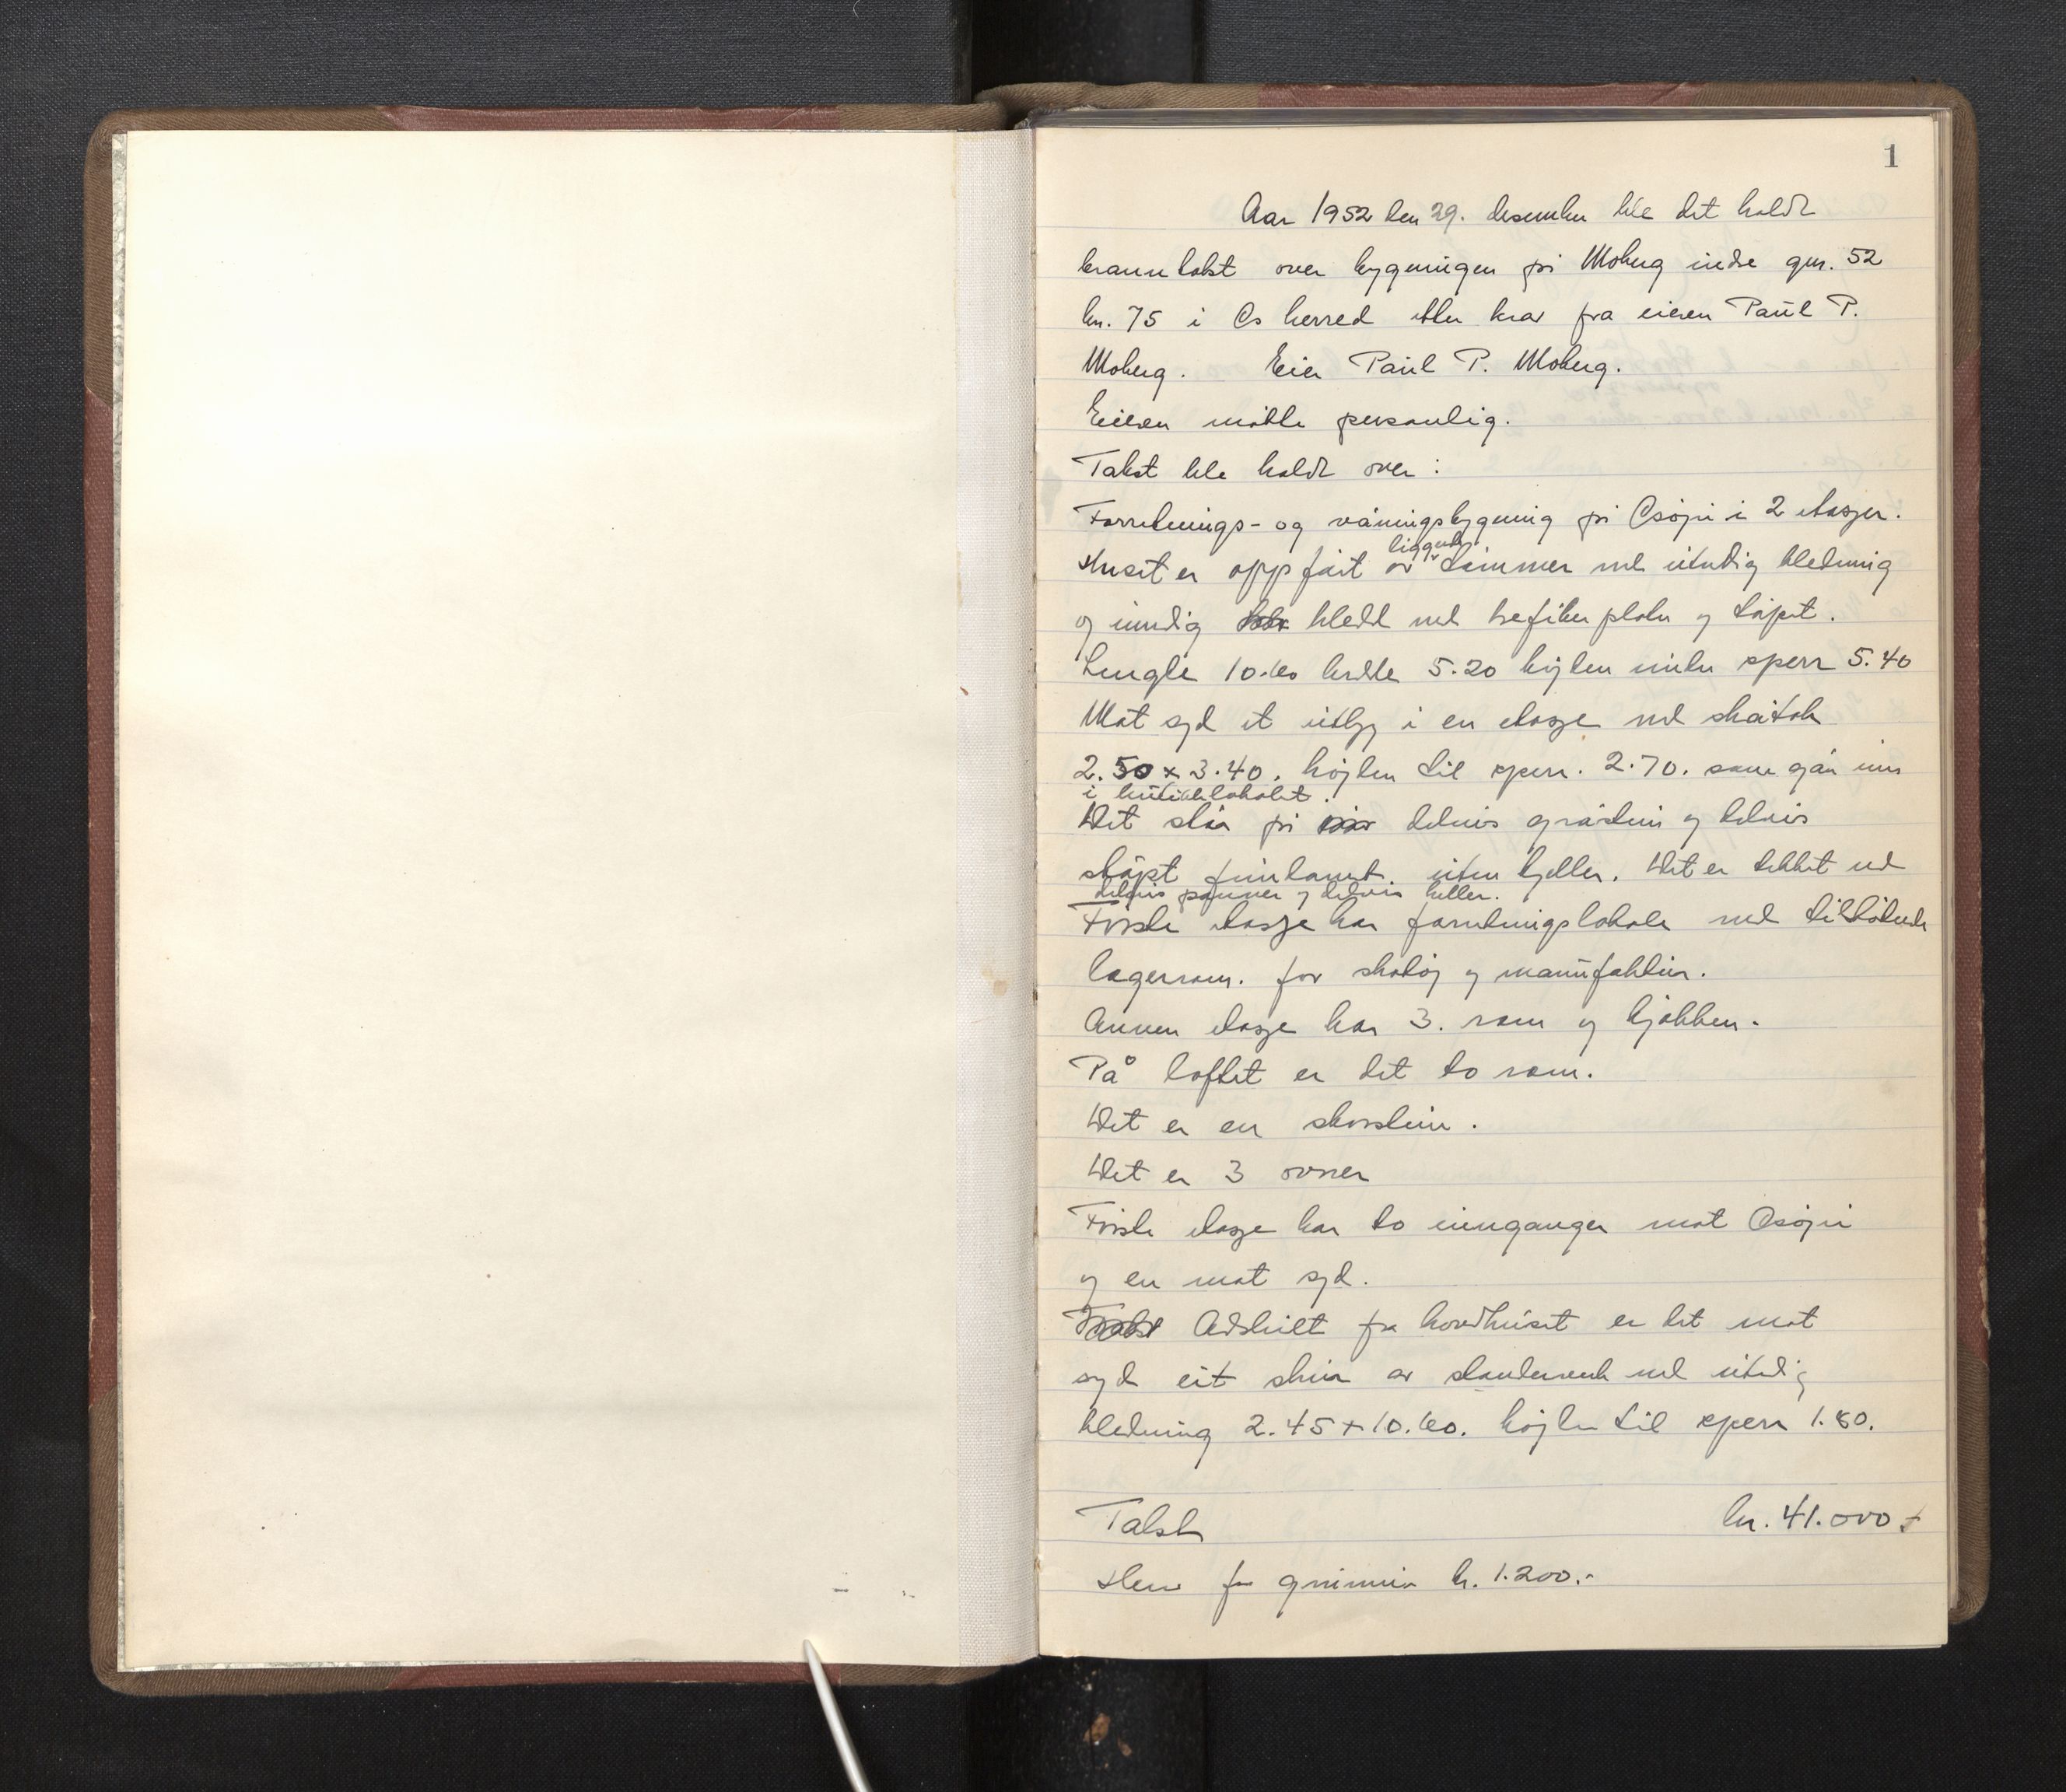 1
Aar 1952 den 29. desember ble det holdt
branntakst over bygningen på Moberg indre gnr. 52
bnr. 75 i Os herred etter krav fra eieren Paul P.
Moberg. Eier Paul P. Moberg.
Eieren møtte personlig.
Takst ble holdt over:
Forretnings- og våningsbygning på Osøyri i 2 etasjer.
liggende
Huset er oppført av tømmer med utvendig kledning
og innvendig kledd med trefiberplater og tapet.
Lengde 10.60 bredde 5.20 højden under sperr 5.40
Mot syd et utbygg i en etasje med skråtak
2.50 x 3.40. højden til sperr. 2.70. som går inn
i butikklokalet.
Det står på delvis gråstein og delvis
støpt fundament. uten kjeller. Det er tekket med
delvis panner og delvis heller.
Første etasje har forretningslokale med tilstøtende
lagerrom. for skotøy og manufaktur.
Annen etasje har 3. rom og kjøkken.
På loftet er det to rom.
Det er en skorstein.
Det er 3 ovner
Første etasje har to innganger mot Osøyri
og en mot syd.
Adskilt fra hovedhuset er det mot
syd eit skur av standerverk med utvendig
kledning 2.45 x 10.60. højden til sperr 1.80.
Takst kr. 41.000.-
Herav for grunnmur kr. 1.200.-